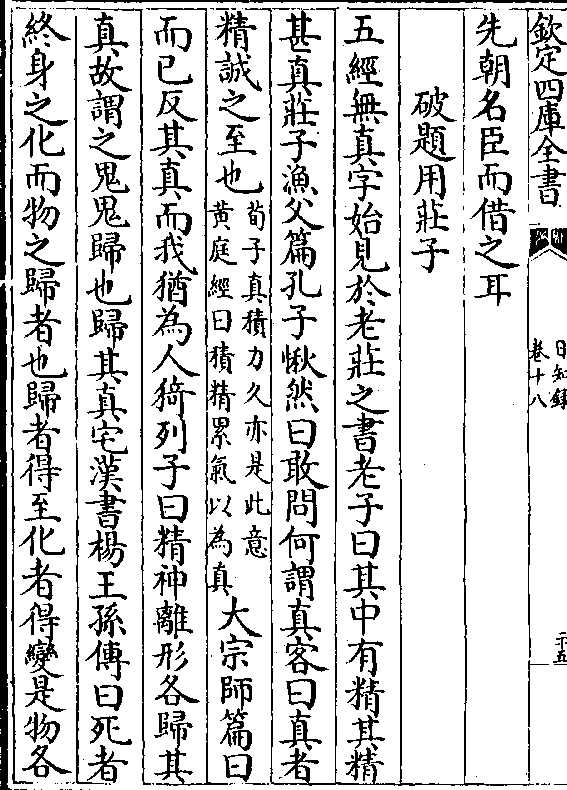 欽定四庫全書
日知錄
卷十八
二十五
先朝名臣而借之耳
破題用莊子
五經無真字始見於老莊之書老子曰其中有精其精
甚真莊子漁父篇孔子愀然曰敢問何謂真客曰真者
精誠之至也
荀子真積力久亦是此意
黄庭經曰積精累氣以為真
大宗師篇曰
而已反其真而我猶為人猗列子曰精神離形各歸其
真故謂之鬼鬼歸也歸其真宅漢書楊王孫傳曰死者
終身之化而物之歸者也歸者得至化者得變是物各